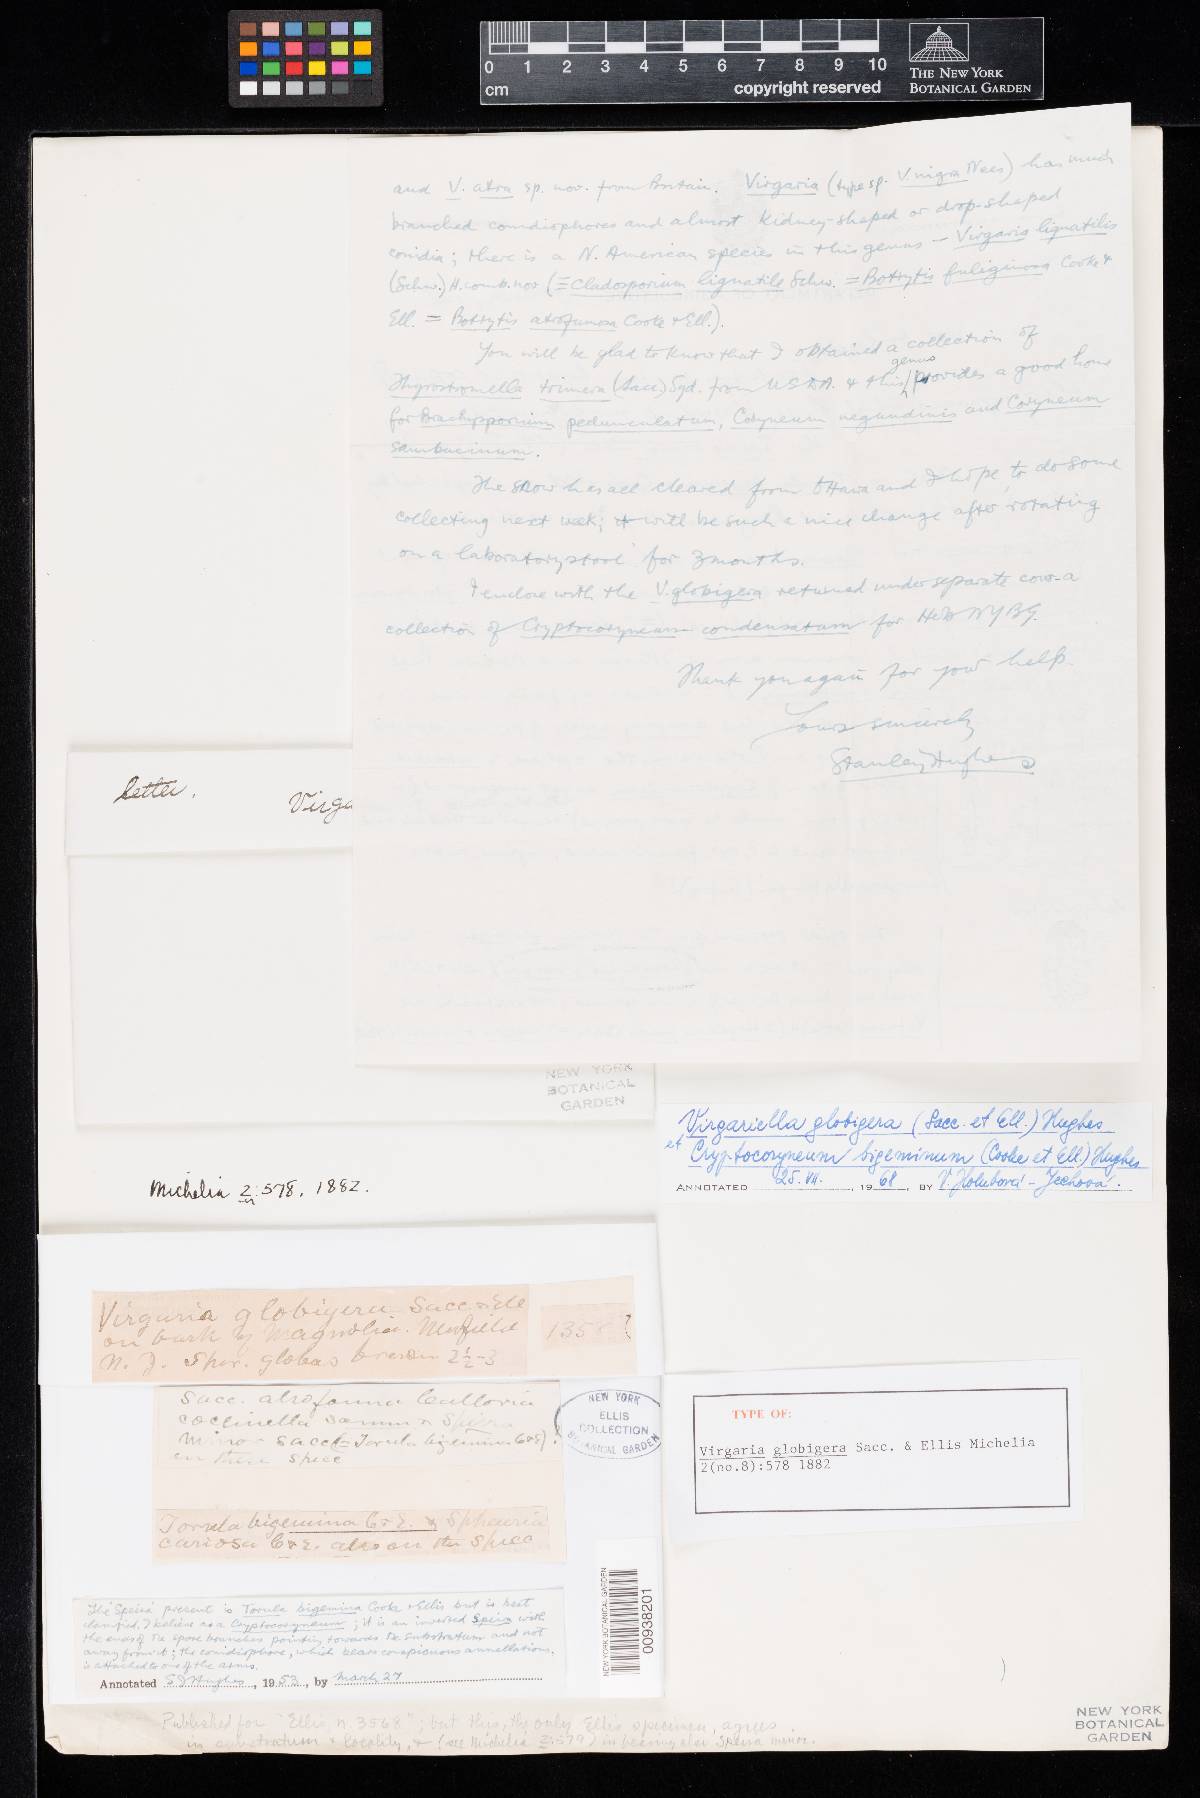 0 1 2 3 4 5 6 7 8 9 10
cm
copyright reserved
THE NEW YORK
BOTANICAL GARDEN
and V. atra sp. nov. from Britain. Virgaria (type sp. V. nigra Nees) has much
branched conidiophores and almost kidney-shaped or drop-shaped
conidia; there is a N. American species in this genus – Virgaria lignatilis
(Schw.) H. comb. nov (≡ Cladosporium lignatile Schw. = Botrytis fuliginosa Cooke &
Ell. = Botrytis atrofumosa Cooke & Ell.).
You will be glad to know that I obtained a collection of
Thyrostromella trimera (Sacc) Syd. from USDA. & this genus provides a good home
for Brachysporium pedunculatum, Coryneum negundinis and Coryneum
sambucinum.
The snow has all cleared from Ottawa and I hope to do some
collecting next week; it will be such a nice change after 'rotating
on a laboratory stool' for 3 months.
I enclose with the V. globigera returned under separate cover a
collection of Cryptocoryneum condensatum for Herb NYBG.
Thank you again for your help.
Yours sincerely
Stanley Hughes
letter.
Virga
NEW YORK
BOTANICAL
GARDEN
Virgariella globigera (Sacc. et Ell.) Hughes
et Cryptocoryneum bigeminum (Cooke et Ell.) Hughes
ANNOTATED 25. VII., 1968, BY V. Holubová-Jechová.
Michelia 2:578, 1882.
Virgaria globigera Sacc & Ell
on bark of Magnolia. Newfield
N. J. Spor. globas brown 2½-3
1358
Sacc. atrofauna
coccinella & Speira
minor Sacc (= Torula bigemina C&E).
on this spec
NEW YORK
ELLIS
COLLECTION
BOTANICAL GARDEN
Torula bigemina C&E. & Sphaeria
cariosa C&E. also on the spec
TYPE OF:
Virgaria globigera Sacc. & Ellis Michelia
2(no.8):578 1882
The 'Speira' present is Torula bigemina Cooke & Ellis but is best
classified, I believe as a Cryptocoryneum; it is an inverted Speira with
the ends of the spore branches pointing towards the substratum and not
away from it; the conidiophore, which bears conspicuous annellations,
is attached to one of the arms.
Annotated S J Hughes, 1953, by March 27
NEW YORK BOTANICAL GARDEN
00938201
Published for "Ellis, n. 3568"; but this, the only Ellis specimen, agrees
in substratum & locality, & (see Michelia 2:579) in bearing also Speira minor.
NEW YORK
BOTANICAL
GARDEN